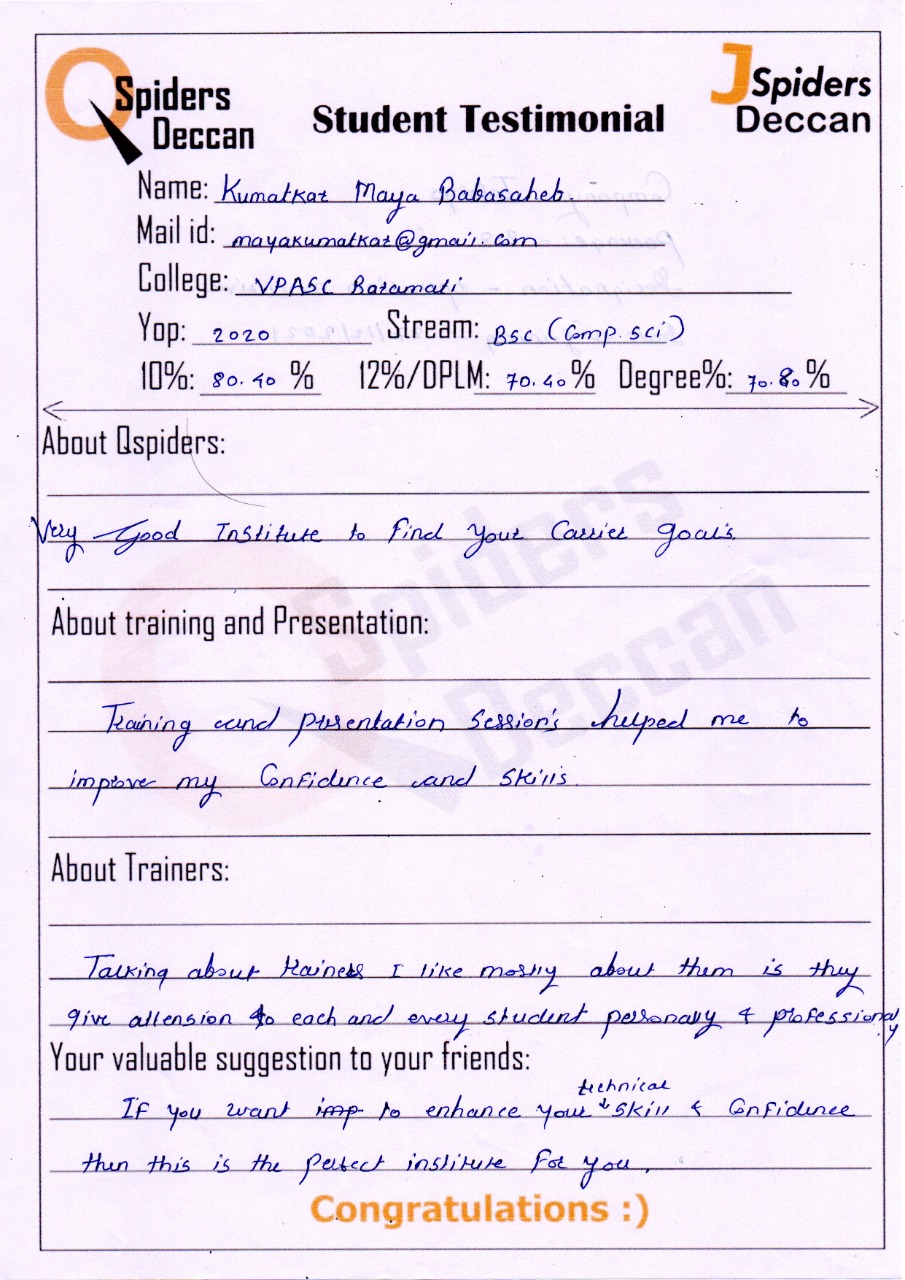 QSpiders
Deccan
JSpiders
Deccan
Student Testimonial
Name: Kumatkar Maya Babasaheb.
Mail id: mayakumatkar@gmail.com
College: VPASC Baramati
Yop: 2020 Stream: BSC (Comp. sci)
10%: 80.40 % 12%/DPLM: 70.40 % Degree%: 70.80 %
About Qspiders:
Very Good Institute to find your Carrier goal's
About training and Presentation:
Training and presentation session's helped me to
improve my Confidence and skills.
About Trainers:
Talking about trainers I like mostly about them is they
give attension to each and every student personally & professionaly
Your valuable suggestion to your friends:
technical
If you want imp to enhance your skill & Confidence
then this is the perfect institute for you.
Congratulations :)
Spiders
Deccan